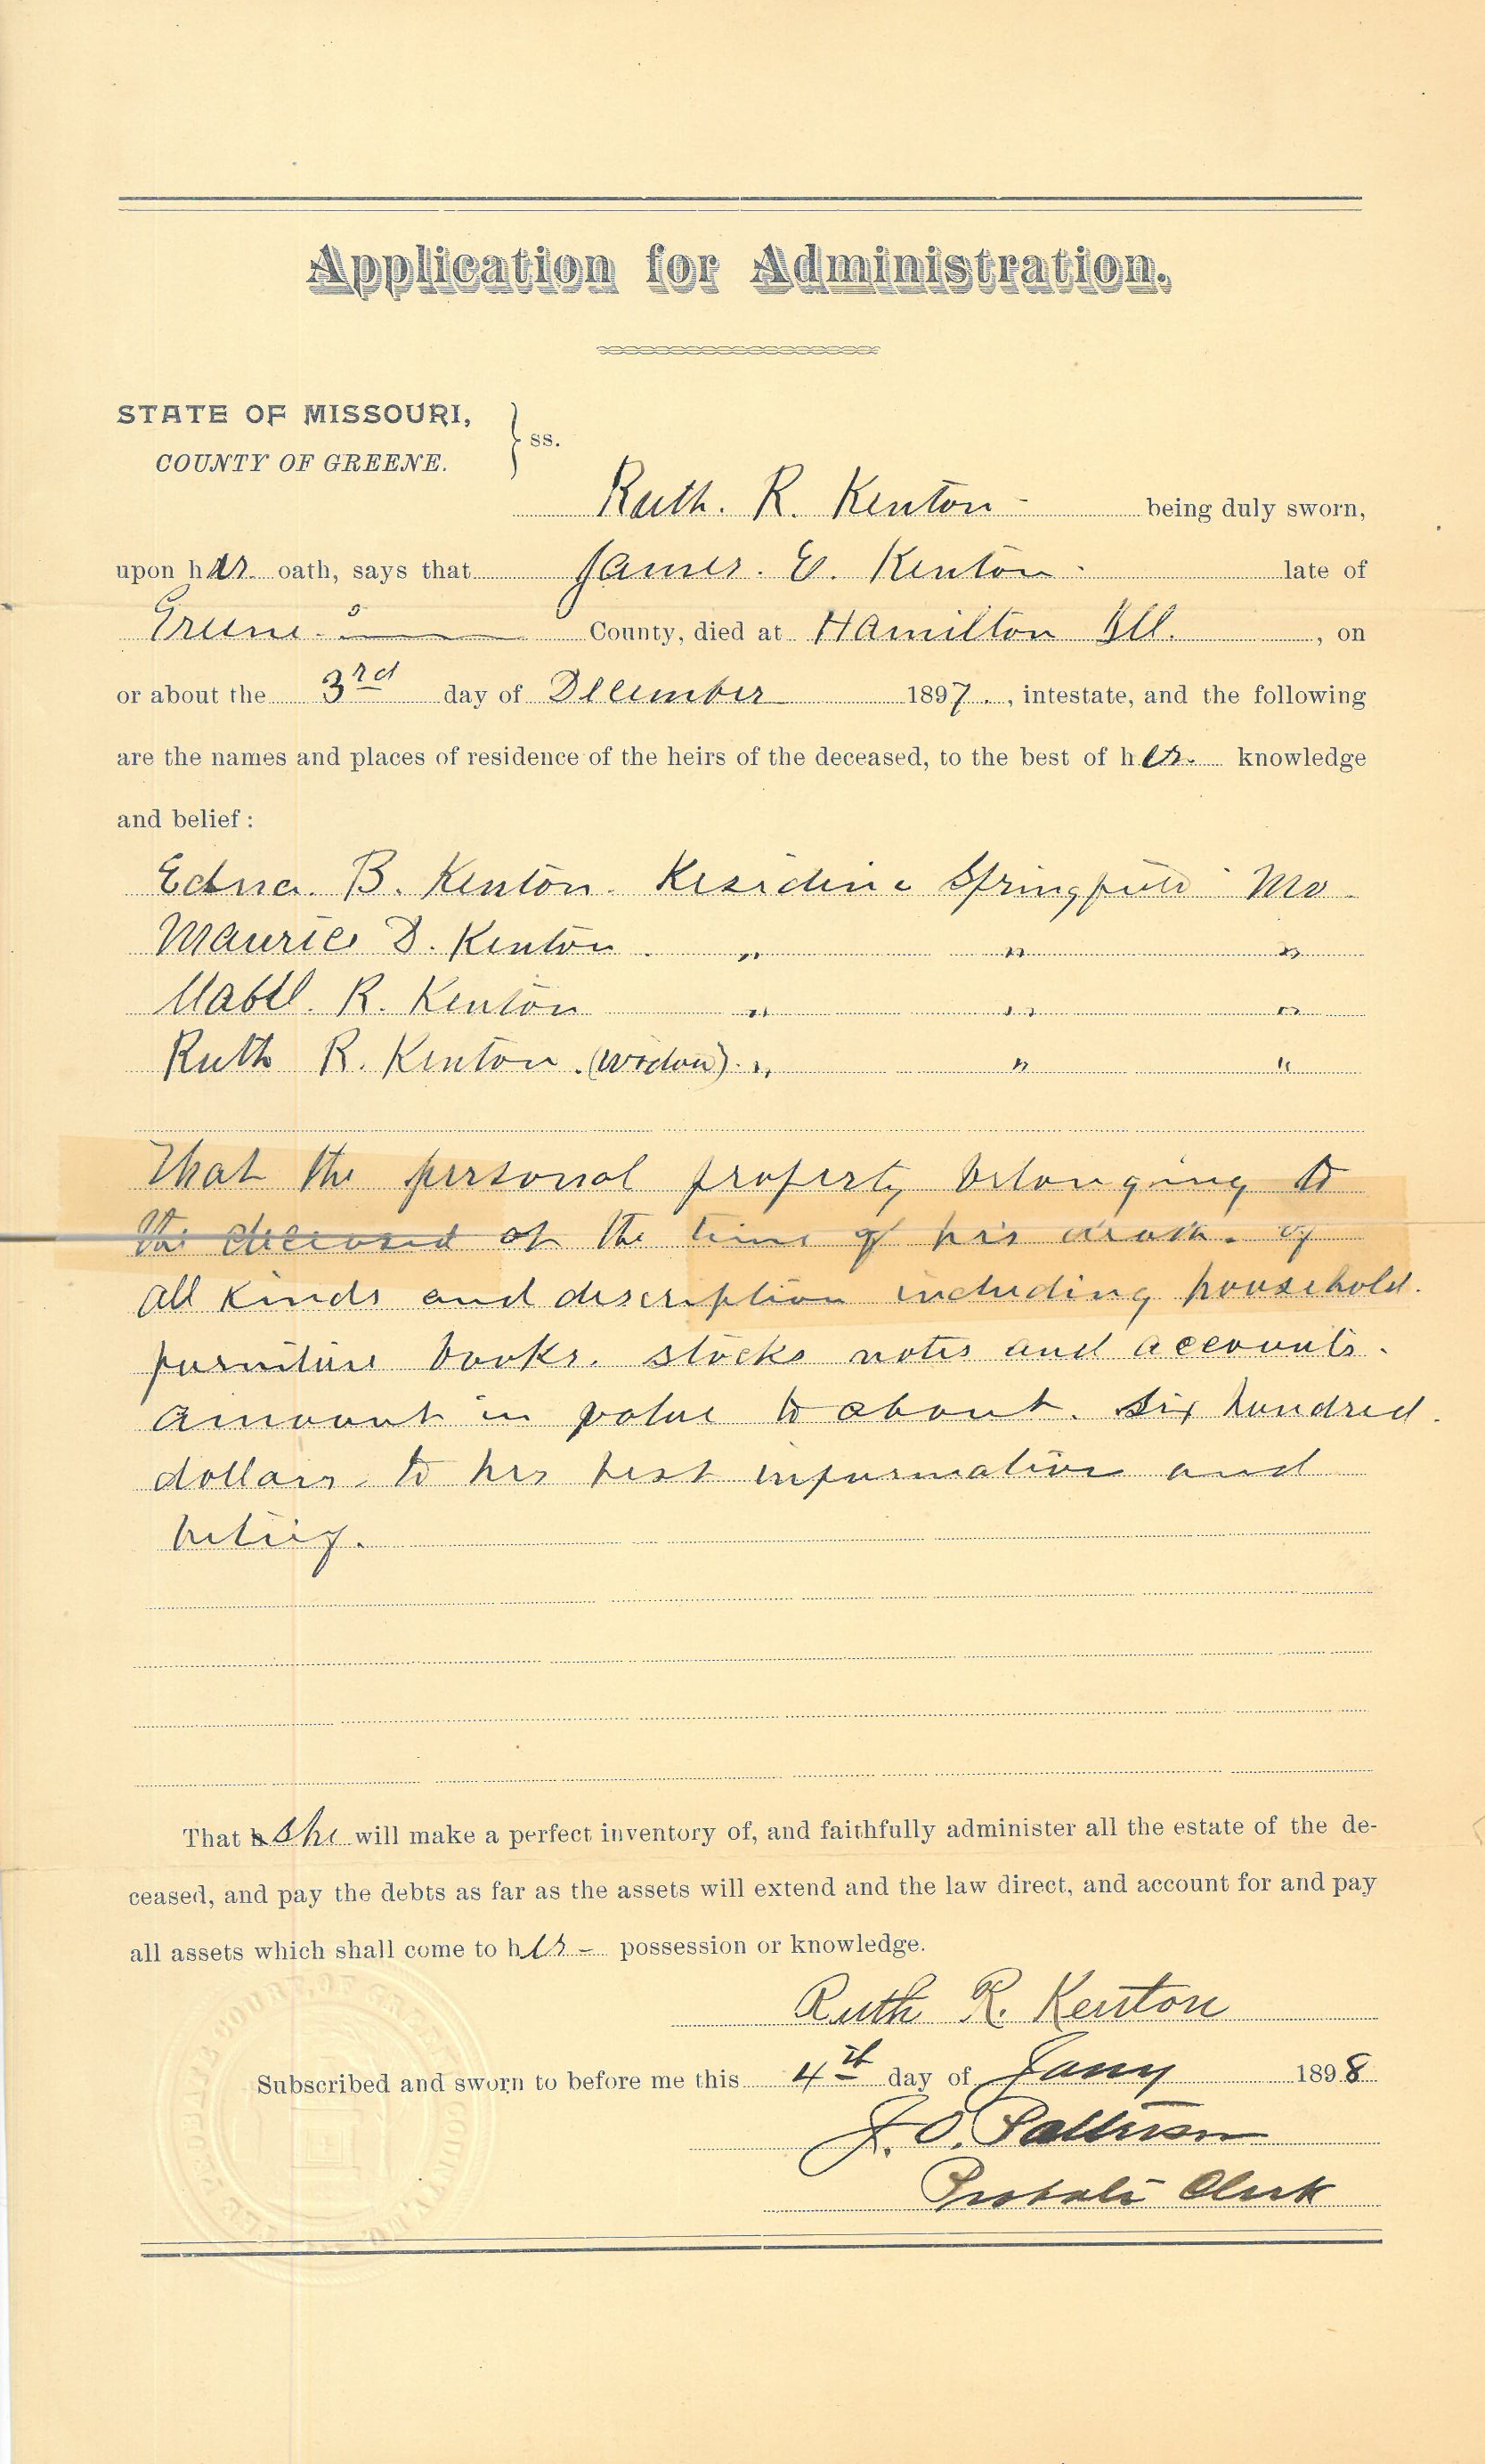 Application for Administration.
STATE OF MISSOURI,
COUNTY OF GREENE. } ss.
Ruth. R. Kenton - being duly sworn,
upon her oath, says that James. E. Kenton - late of
Greene County, died at Hamilton Ill. , on
or about the 3rd day of December 1897. , intestate, and the following
are the names and places of residence of the heirs of the deceased, to the best of her. knowledge
and belief :
Edna. B. Kenton. Residence Springfield Mo
Maurice D. Kenton . " " "
Mabel. R. Kenton " " "
Ruth R. Kenton. (widow). " " "
That the personal property belonging to
the deceased at the time of his death. of
all kinds and description including household.
furniture books. stocks notes and accounts.
amount in value to about. six hundred.
dollars. to her best information and
belief.
That she will make a perfect inventory of, and faithfully administer all the estate of the de-
ceased, and pay the debts as far as the assets will extend and the law direct, and account for and pay
all assets which shall come to her - possession or knowledge.
Ruth R. Kenton
Subscribed and sworn to before me this 4th day of Jany 1898
J. O. Patterson
Probate Clerk